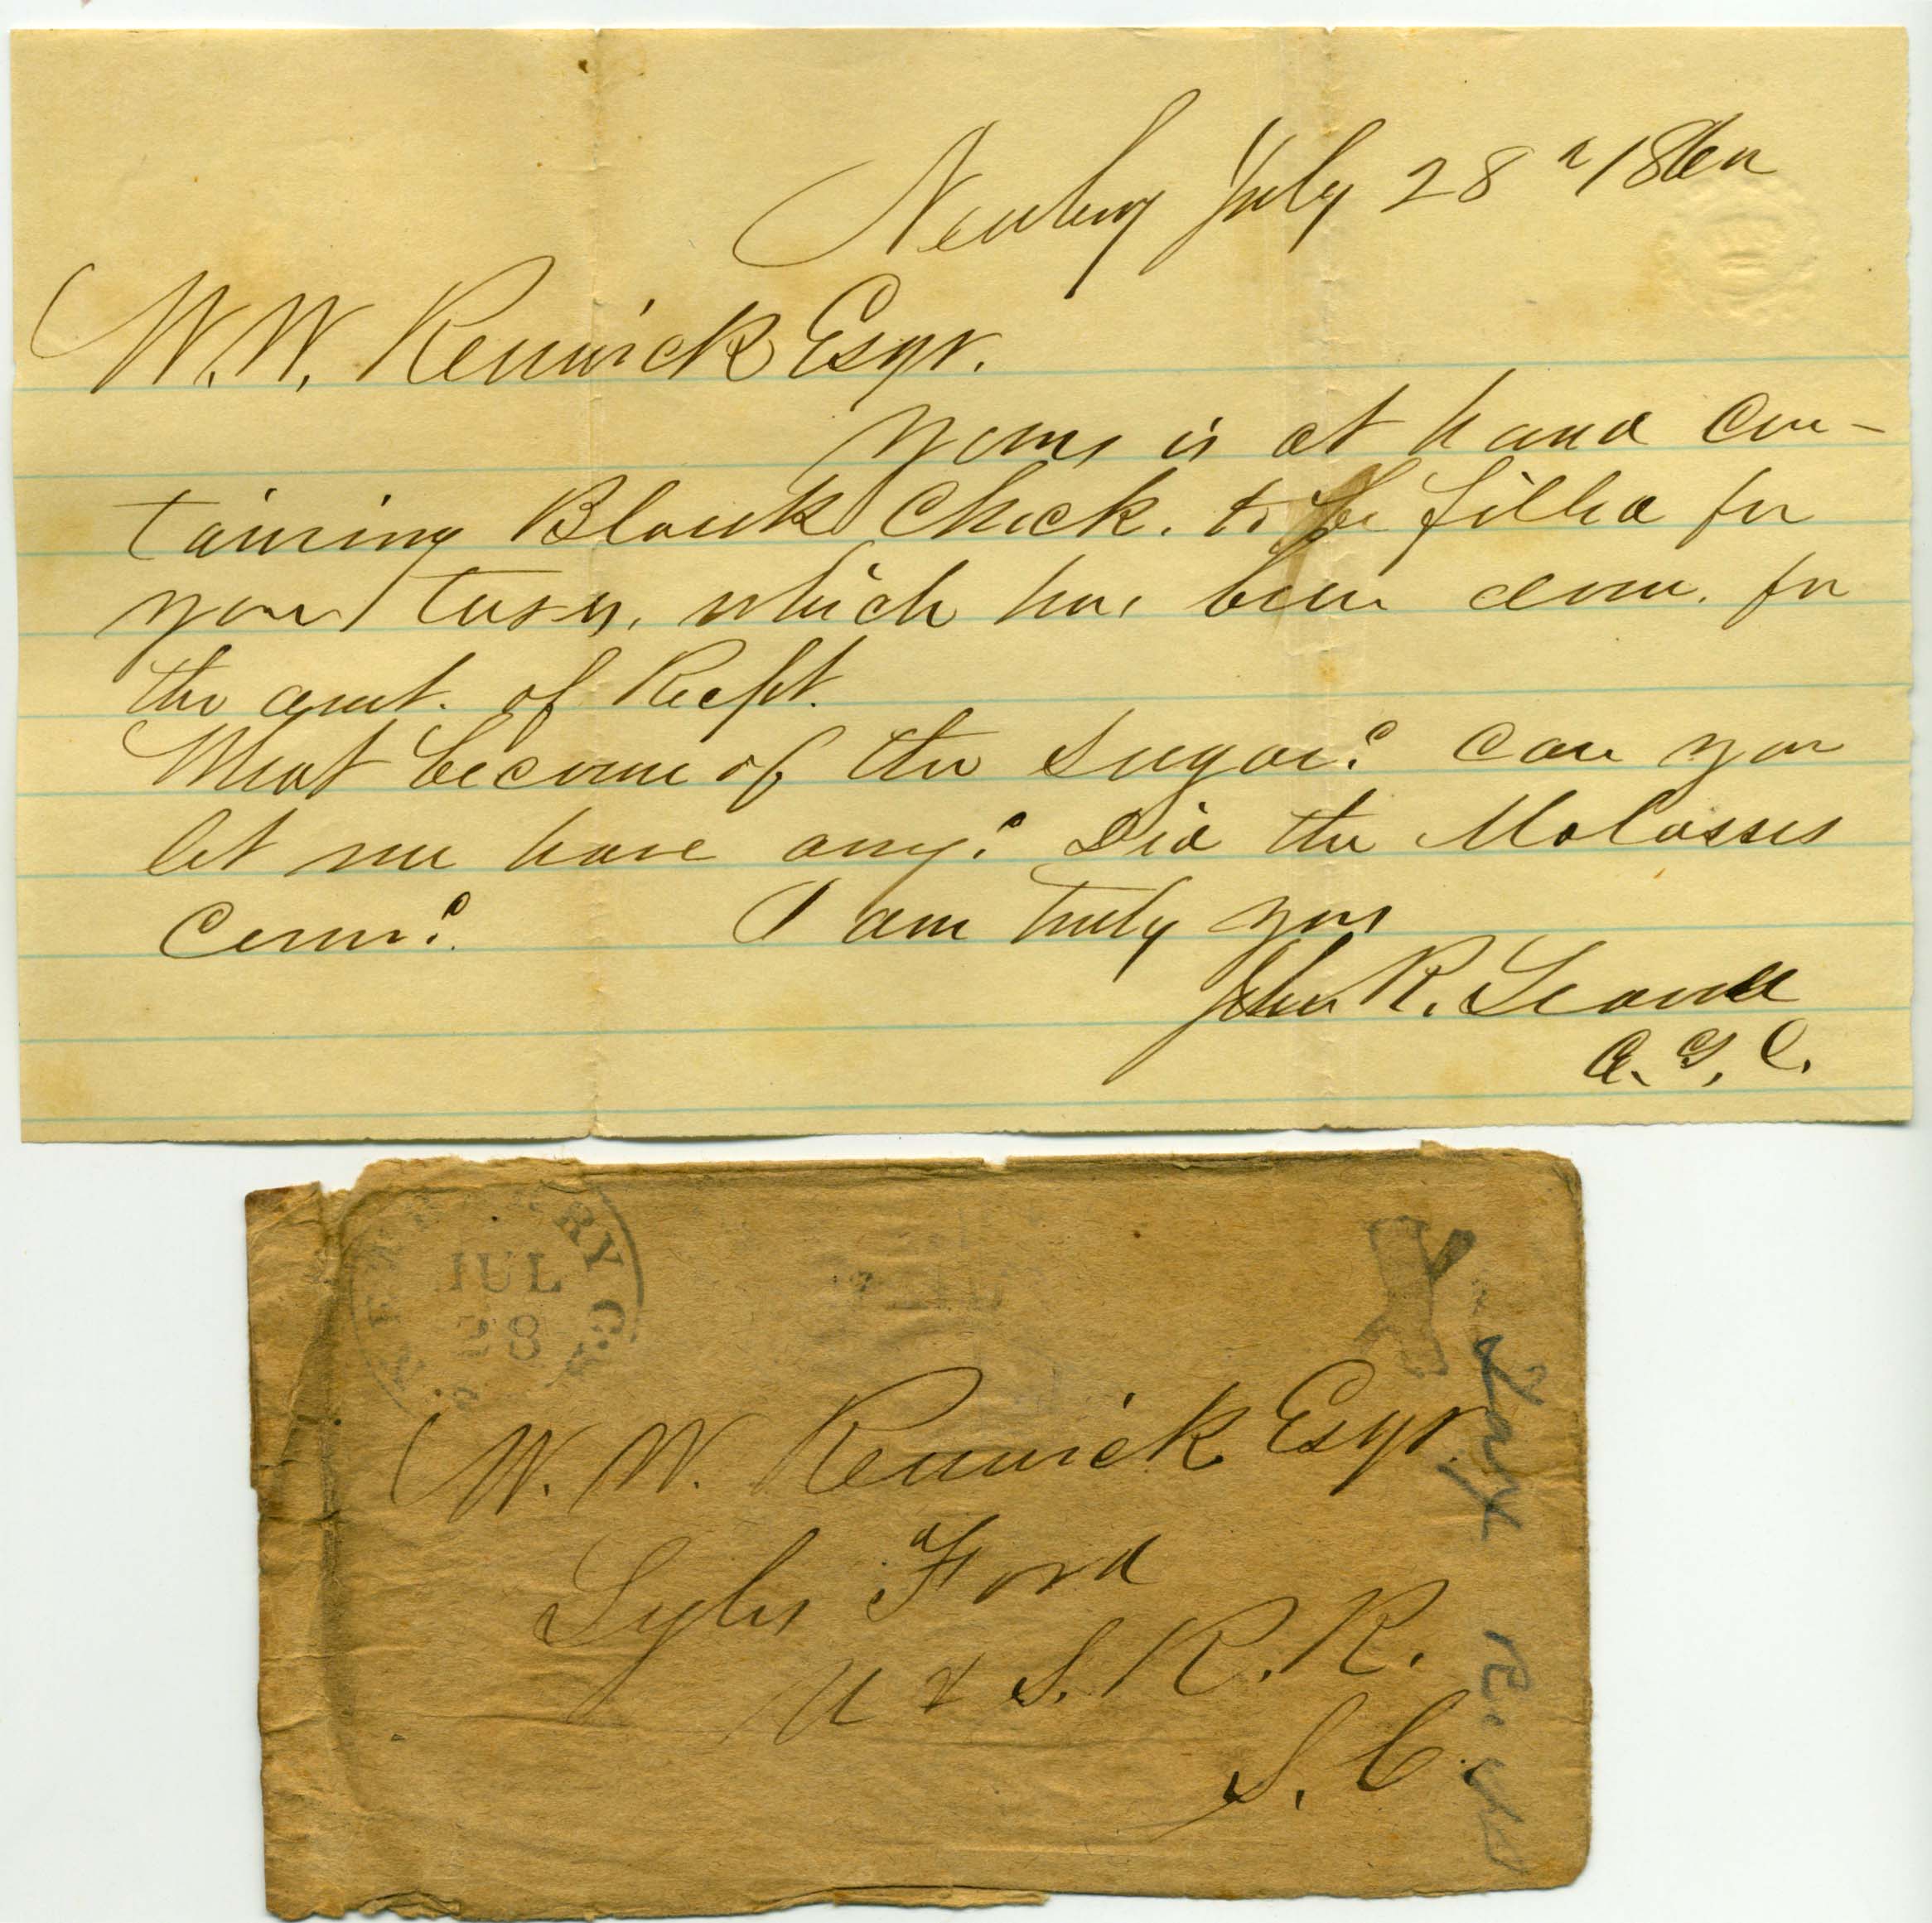 Newby July 28th 186
W. W. Renwick Esqr.
Yours is at hand con-
taining Blank Check. to be filled for
your taxes, which has been done. for
the amt. of Recpt.
What become of the sugar? Can you
let me have any? Did the Molasses
Come?
I am truly yrs
John R. Leavell
A. T. C.
NEWBERRY C.H.
S.C.
JUL
28
W. W. Renwick Esqr.
Lyles Ford
U & S. R. R.
S. C.
Tax